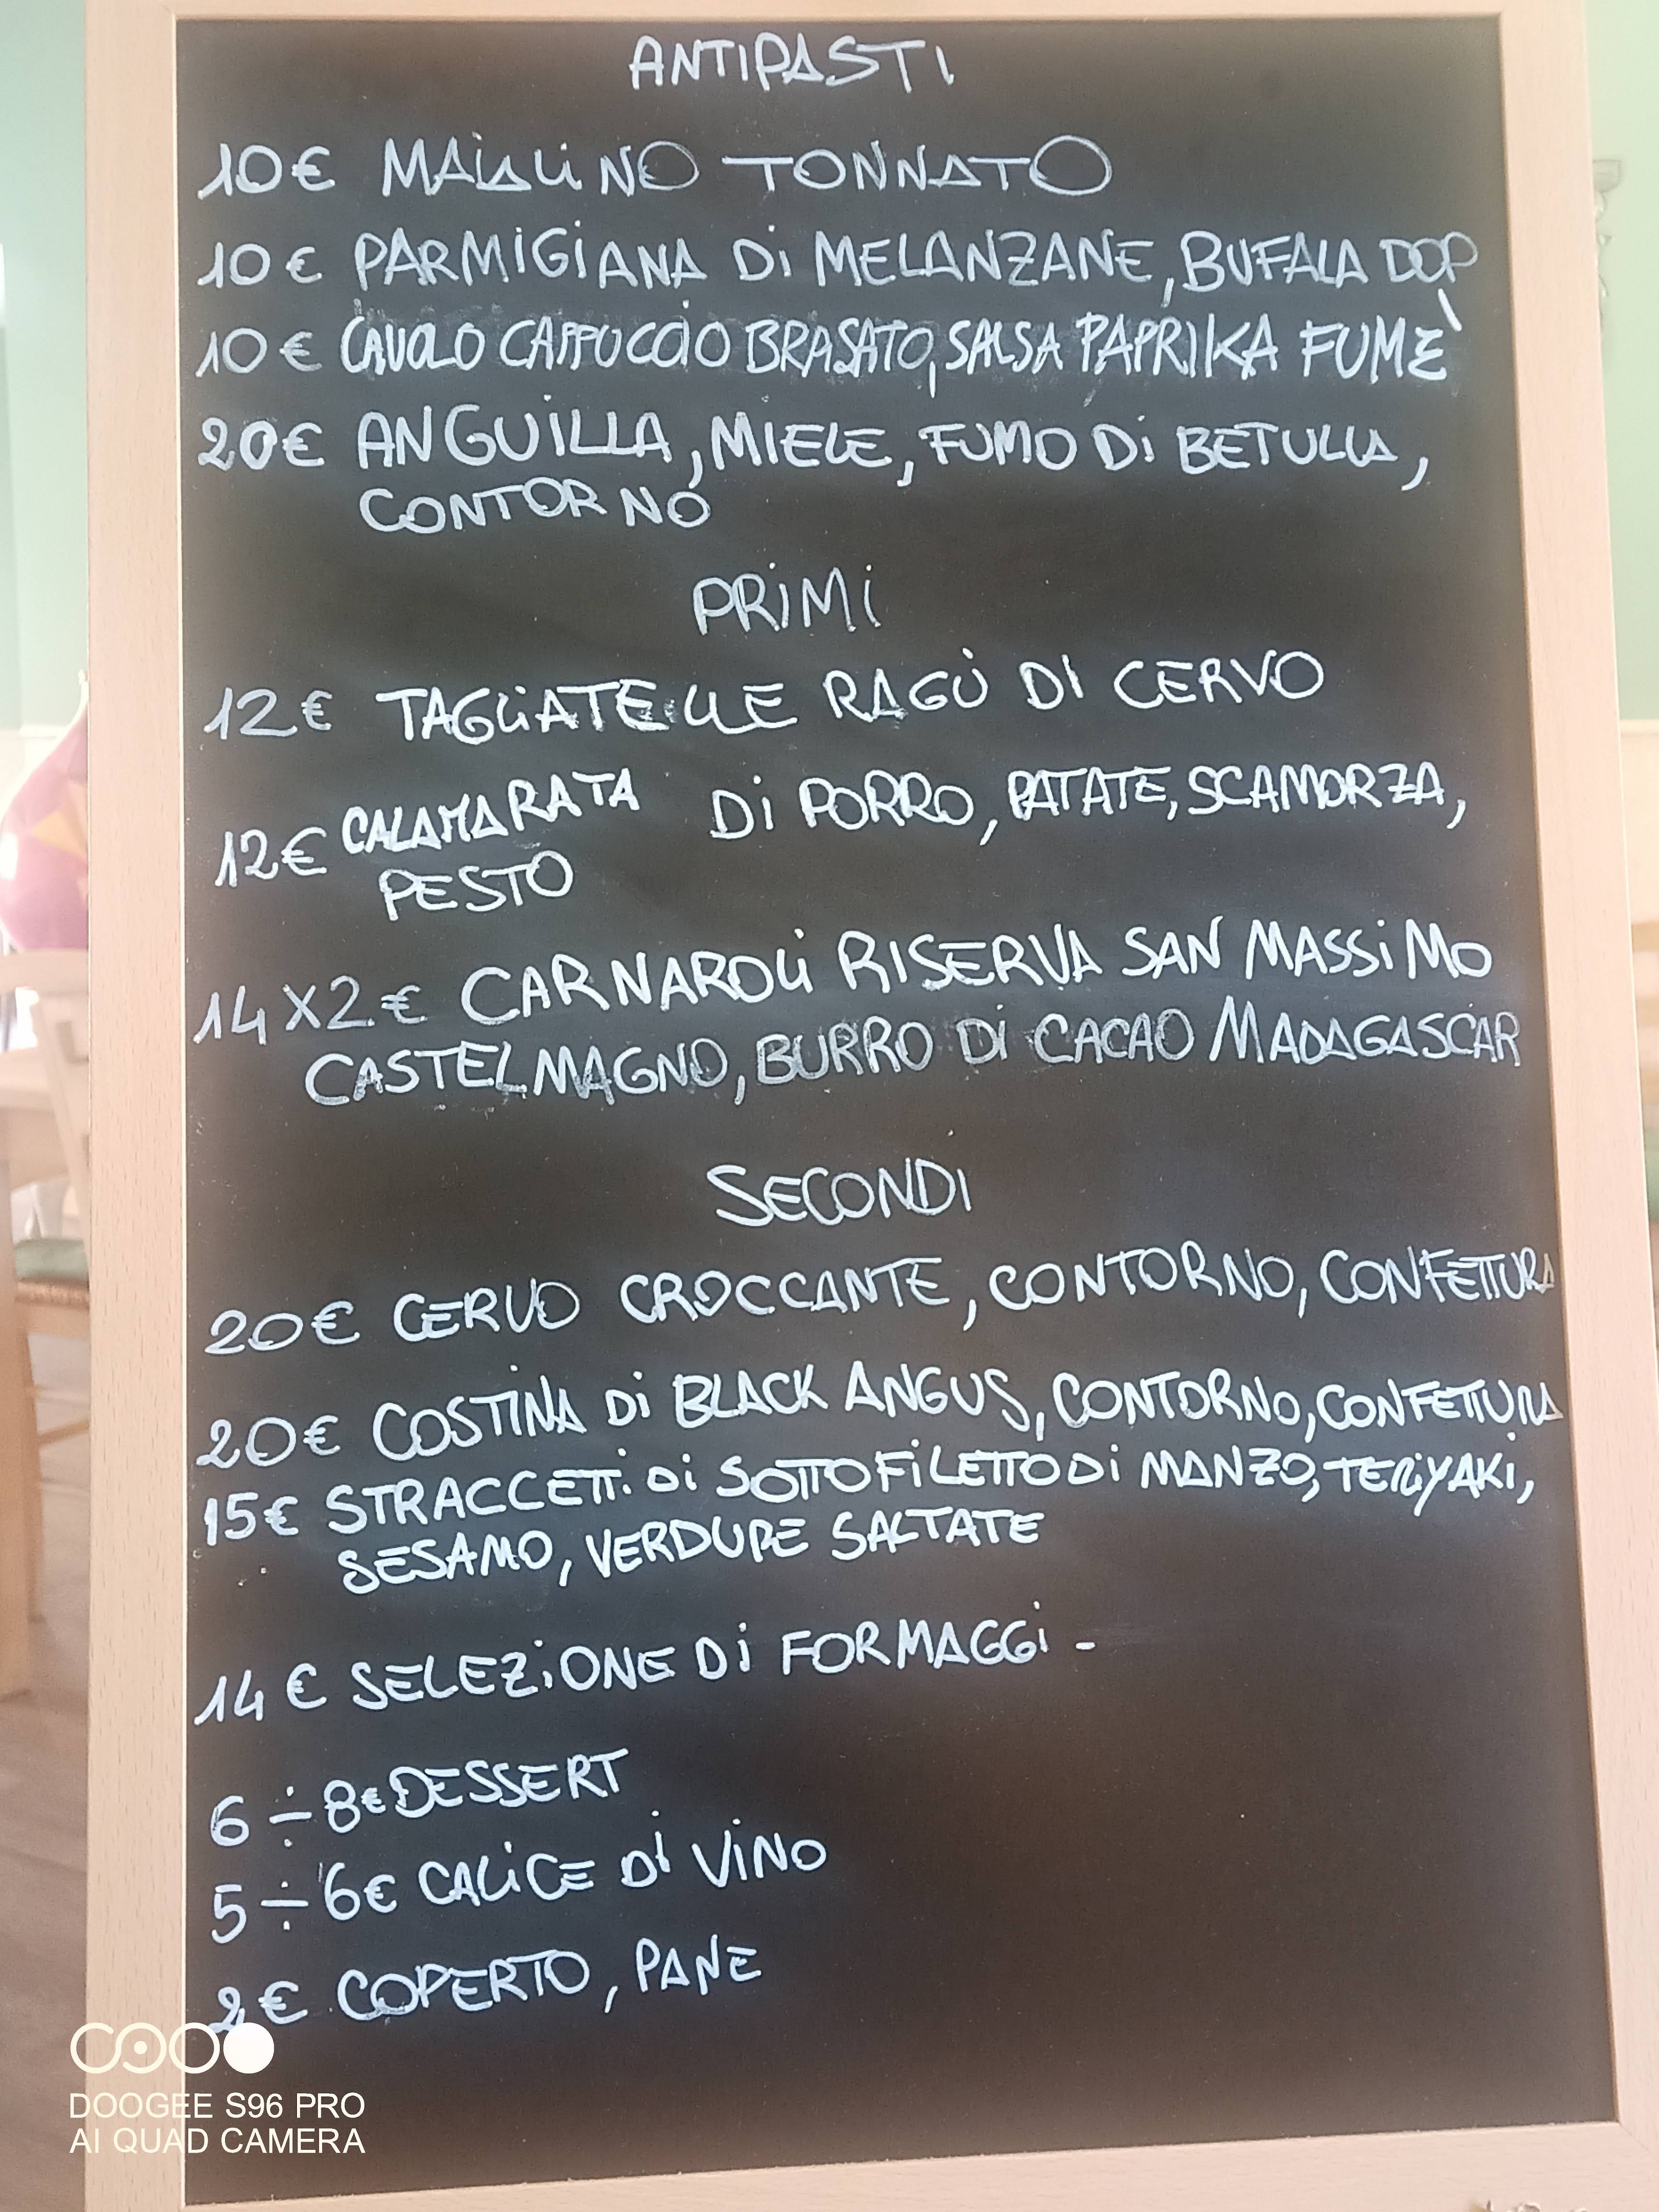 ANTIPASTI
10€ MAIALINO TONNATO
10€ PARMIGIANA DI MELANZANE, BUFALA DOP
10€ CAVOLO CAPPUCCIO BRASATO, SALSA PAPRIKA FUMÈ
20€ ANGUILLA, MIELE, FUMO DI BETULLA,
CONTORNO
PRIMI
12€ TAGLIATELLE RAGÙ DI CERVO
12€ CALAMARATA DI PORRO, PATATE, SCAMORZA,
PESTO
14X2€ CARNAROLI RISERVA SAN MASSIMO
CASTELMAGNO, BURRO DI CACAO MADAGASCAR
SECONDI
20€ CERVO CROCCANTE, CONTORNO, CONFETTURA
20€ COSTINA DI BLACK ANGUS, CONTORNO, CONFETTURA
15€ STRACCETTI DI SOTTOFILETTO DI MANZO, TERIYAKI,
SESAMO, VERDURE SALTATE
14€ SELEZIONE DI FORMAGGI -
6÷8€ DESSERT
5÷6€ CALICE DI VINO
2€ COPERTO, PANE
DOOGEE S96 PRO
AI QUAD CAMERA